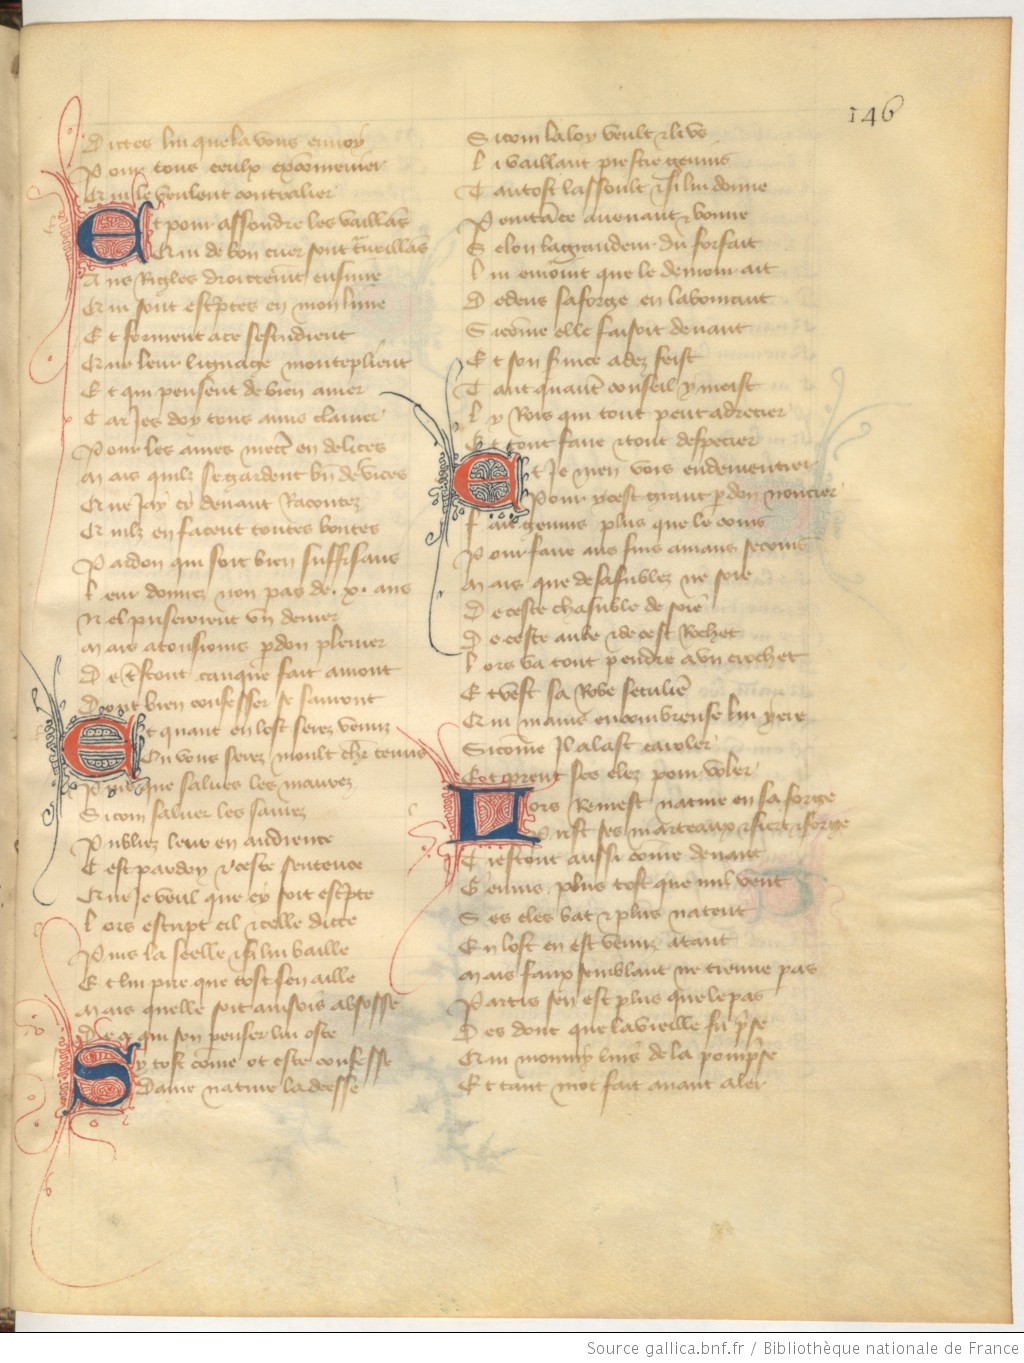 146
Dictes lui que la vous envoy
Pour tous ceulx excomenier
Qui le veulent contralier
Et pour assouldre les vaillãs
Qui de bon cuer sont t̃ueillãs
Aus Rigles droictemt ensuiure
Qui sont escp̃tes en mon liure
Et forment a ce sestudient
Que leur lignage monteplient
Et qui pensent de bien amer
Car Jes doy tous amis clamer
Pour les ames mect̃ en delices
Mais quilz se gardent bñ de vices
Que Jay cy deuant Racontez
Quilz en facent toutes bontes
Pardon qui soit bien suffisans
Leur donnez non pas de .x. ans
Nel priseroient vn denier
Mais a tousiours p̱don plenier
De t̃stout canque fait auront
Dont bien confesser se sauront
Et quant en lost serez venuz
Ou vous serez moult chr tenus
Puis que salues les maurez
Si com saluer les saurez
Publiez leur en audience
Cest pardon et ceste sentence
Que Je veul que cy soit escp̃te
Lors escript cil et celle dicte
Puis la seelle et si lui baille
Et lui prie que tost sen aille
Mais quelle soit ainsois absosse
De ce qui son penser lui oste
Sy tost cõme ot este confesse
Dame nature la deesse
Si com la loy veult et li vs
Li vaillant prestre genius
Tantost lassoult et si lui donne
Penitãce auenant et bonne
Selon la grandeur du forfait
Lui enioint que le demourait
Dedens sa forge en labourant
Si cõme elle faisoit deuant
Et son seruice adez feist
Tant quautre conseil y meist
Ly Rois qui tout peut adrecier
Et tout faire et tout despecier
Et Je men vois endementier
Pour ycest grant p̱don noncier
Fait genius plus que le cours
Pour faire aus fins amans secours
Mais que desafublez ne soie
De ceste chasuble de soie
De ceste aube et de cest Rochet
Lors va tout pendre a vn crochet
Et vest sa Robe seculiẽ
Qui mains encombreuse lui yere
Si cõme Jl alast caroler
Et prent ses elez pour voler
Lors Remest nature en sa forge
Prist ses marteaux et fiert et forge
Trestout aussi cõme deuant
Genius plus tost que nul vent
Ses eles bat et plus natent
En lost en est venuz atant
Mais faux semblant ne treuue pas
Partis sen est plus que le pas
Des dont que la vieille fu p̃se
Qui mouury luis de la pourp̃se
Et tant mot fait auant aler
Source gallica.bnf.fr / Bibliothèque nationale de France